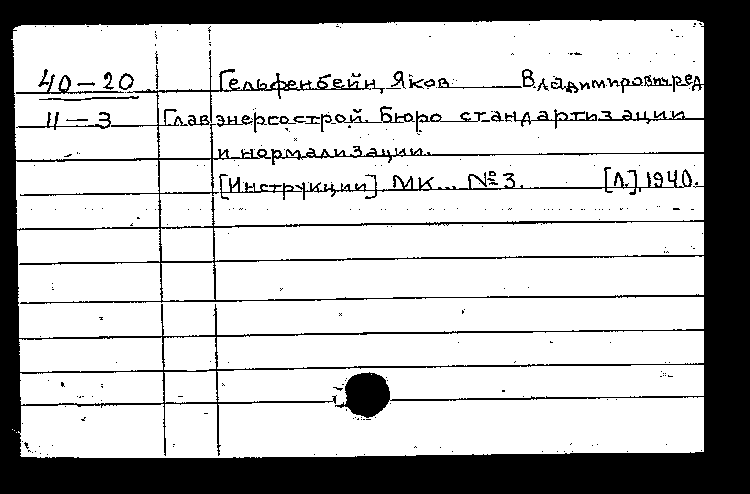 40-20 Гельфенбейн, Яков Владимирович, ред
11-3 Главэнергострой. Бюро стандартизации
и нормализации.
[Инструкции]. МК... №3. [Л.], 1940.